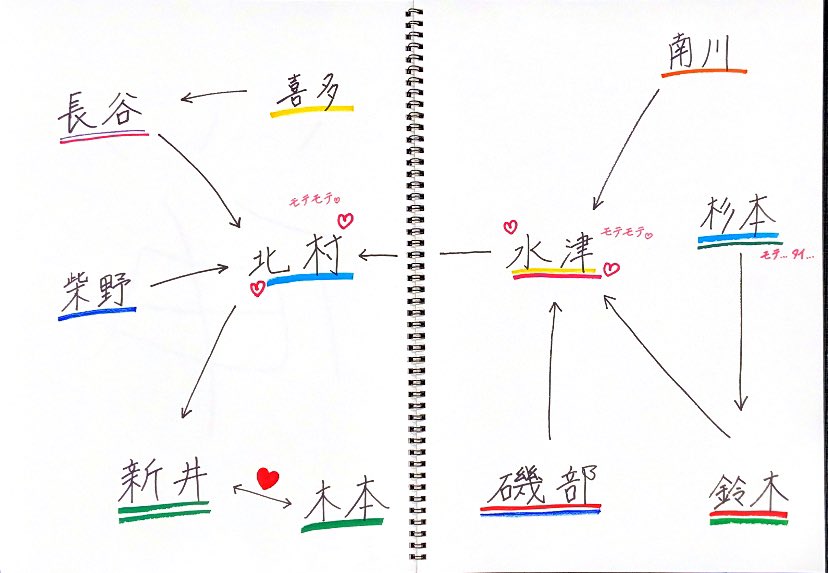 長谷
喜多
北村
モテモテ♡
柴野
新井
木本
南川
杉本
モテ...タイ...
水津
モテモテ♡
磯部
鈴木